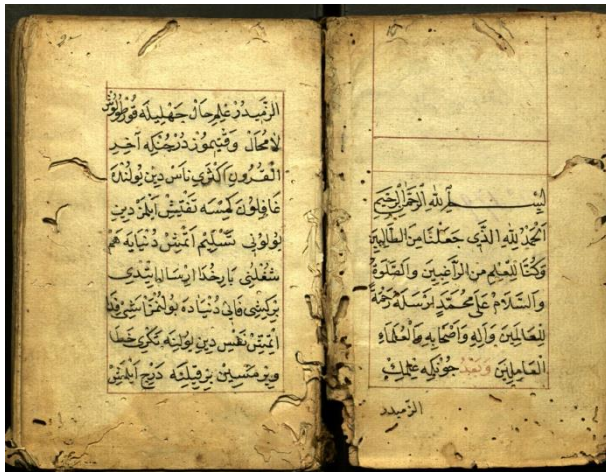 بِسْمِ اللّٰهِ الرَّحْمٰنِ الرَّحِيمِ
اَلْحَمْدُ لِلّٰهِ الَّذِى جَعَلَنَا مِنَ الطَّالِبِينَ
وَكُنَّا لِلْعِلْمِ مِنَ الرَّاغِبِينَ وَالصَّلٰوةُ
وَالسَّلَامُ عَلٰى مُحَمَّدٍ رَحْمَةً
لِلْعَالَمِينَ وَآلِهِ وَاَصْحَابِهِ وَالْعُلَمَاءِ
الْعَامِلِينَ وَبَعْدُ چونكه علمك
الزميدر
الزميدر علم حال جهليله
لا محال وقتيموزدر چنكه آخر
القرون اكثرى ناس دين يولنده
غافلون كيمسه تفتيش ايلمز دين
يولونى تسليم اتمش دنيايه هم
شغلنى ارسال ايتدى
بر كيشى فانى دنياده بولنمز اشى فدا
اتمش نفس دين يولنه تكرى خطا
ويرمسين بر قيلنه درج ايلمش